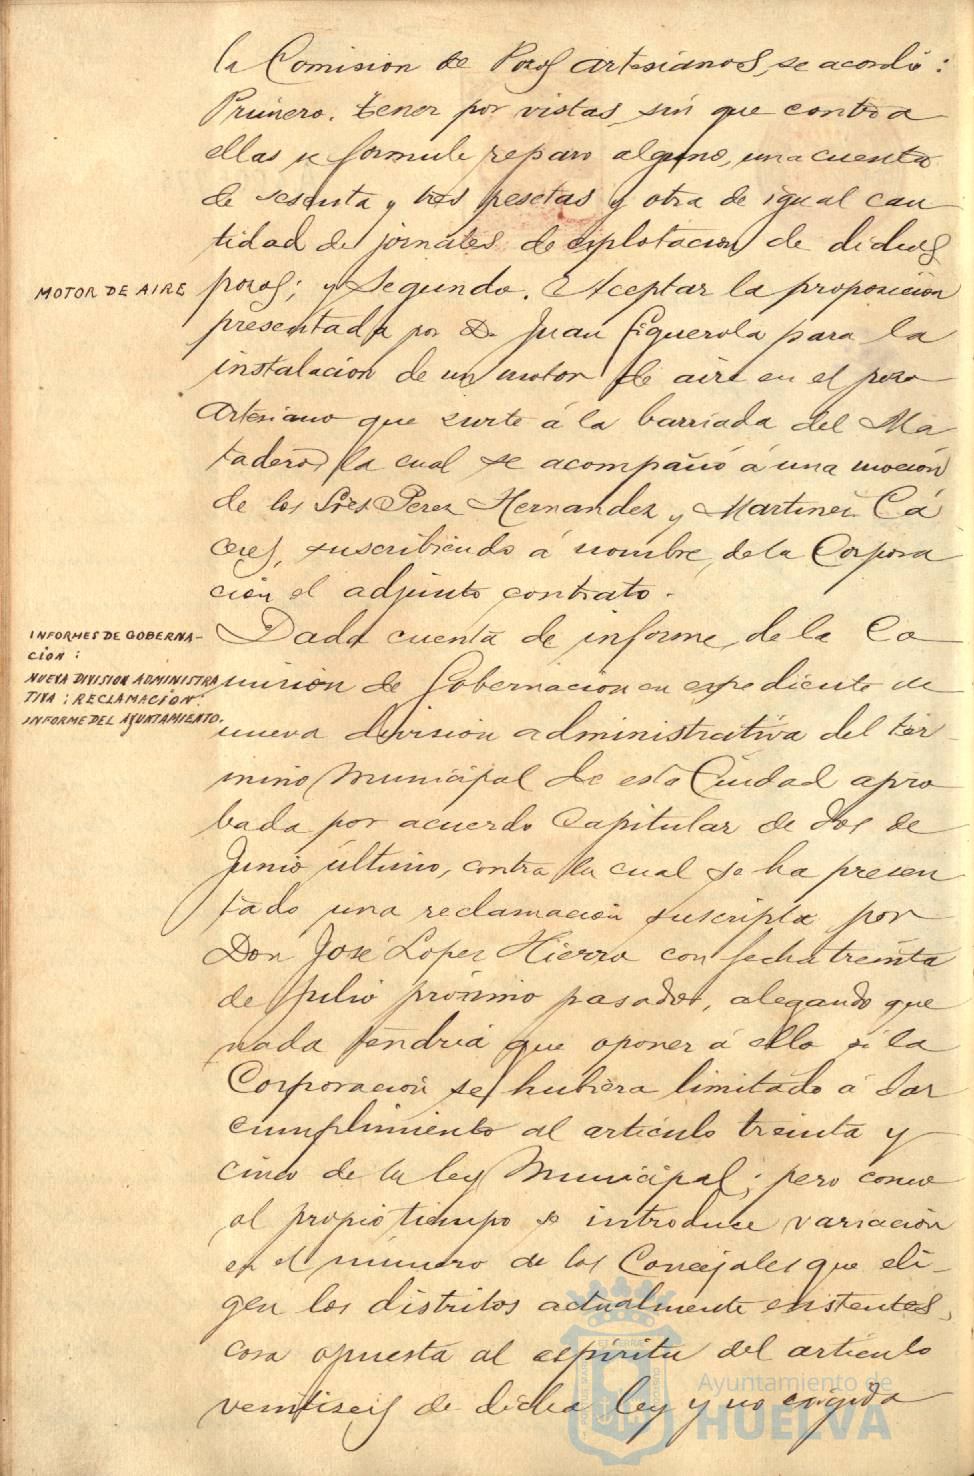 la Comision de Pozos artesianos, se acordó:
Primero. tener por vistas, sin que contra
ellas se formule reparo alguno, una cuenta
de sesenta y tres pesetas y otra de igual can
tidad de jornales de esplotacion de dichos
MOTOR DE AIRE
pozos; y Segundo. Aceptar la proposicion
presentada por D. Juan Figuerola para la
instalacion de un motor de aire en el pozo
Artesiano que surte á la barriada del Ma
tadero, la cual se acompañó á una mocion
de los Sres Perez Hernandez y Martinez Cá
ceres, suscribiendo á nombre de la Corpora
cion el adjunto contrato.
INFORMES DE GOBERNA-
CIÓN:
NUEVA DIVISION ADMINISTRA
TIVA: RECLAMACIÓN:
INFORME DEL AYUNTAMIENTO.
Dada cuenta de informe, de la Co
mision de Gobernacion en espediente de
nueva division administrativa del tér-
mino Municipal de esta Ciudad apro
bada por acuerdo Capitular de dos de
Junio último, contra la cual se ha presen
tado una reclamación suscripta por
Don José Lopez Hierro con fecha treinta
de Julio próximo pasado, alegando que
nada tendria que oponer á ello si la
Corporación se hubiera limitado á dar
cumplimiento al artículo treinta y
cinco de la ley Municipal; pero como
al propio tiempo se introduce variación
en el número de los Concejales que eli-
gen los distritos actualmente existentes,
cosa opuesta al espíritu del artículo
veintiseis de dicha ley y no exigida
Ayuntamiento de
HUELVA